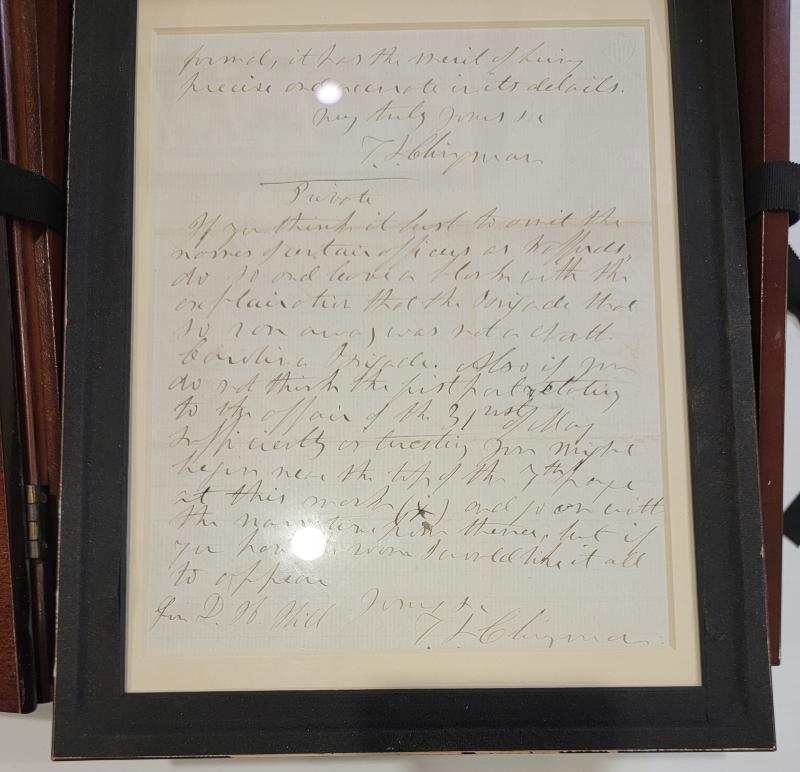 formal, it has the merit of being
precise and accurate in its details.
Very truly yours &c
T. L. Clingman
Private
If you think it best to omit the
names of certain officers as
do so and leave a blank with the
explanation that the Brigade that
so ran away was not a North
Carolina Brigade. Also if you
do not think the first part relating
to the affair of the 31st of May
sufficiently interesting you might
begin near the top of the 7th page
at this mark (x) and go on with
the narrative from thence, but if
you have room I would like it all
to appear
Yours &c
Gen D. H. Hill
T. L. Clingman